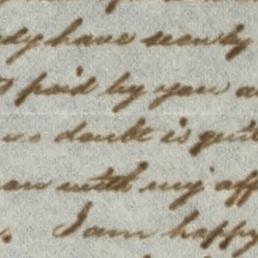 dy have seen by
t paid by you a
no doubt is quit
an with my aff
. I am happy